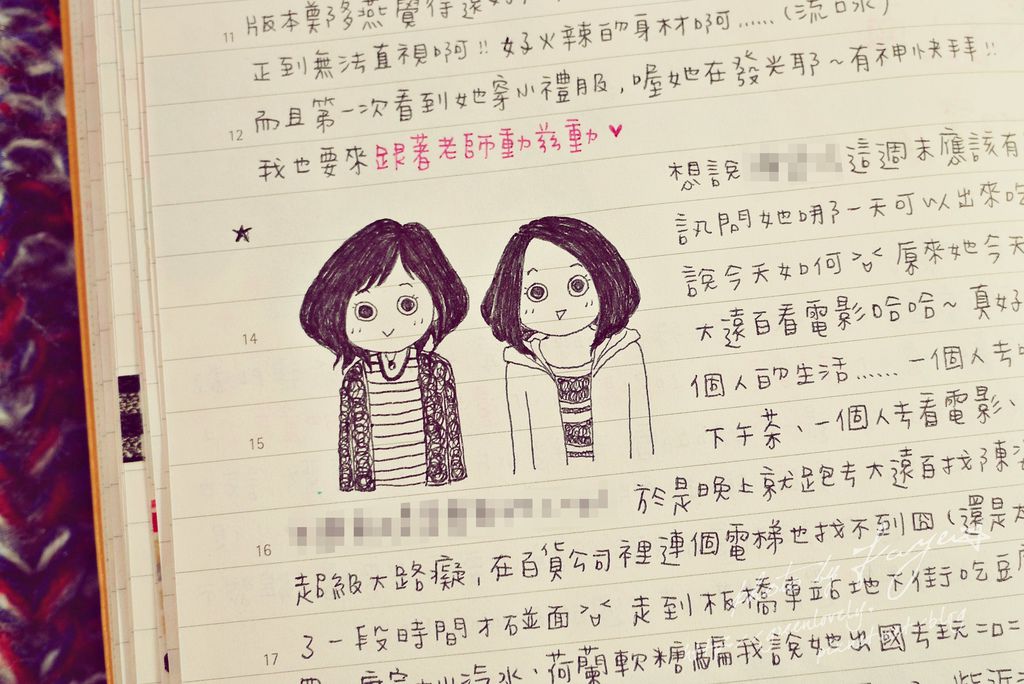 11 版本莫 燕覺得還
正到無法直視啊!! 好火辣的身材啊……(流口水)
而且第一次看到她穿小禮服,喔她在發光耶～有神快拜!!
12
我也要來跟著老師動茲動♥
想說 這週末應該有
訊問她哪一天可以出來吃
說今天如何>"< 原來她今天
14 大遠百看電影哈哈～真好
個人的生活…… 一個人去
15 下午茶、一個人去看電影、
於是晚上就跑去大遠百找陳
16
超級大路癡,在百貨公司裡連個電梯也找不到囧(還是
了一段時間才碰面>"< 走到板橋車站地下街吃豆
17
汽水、荷蘭軟糖騙我說她出國去玩=口=
photo by Kayen